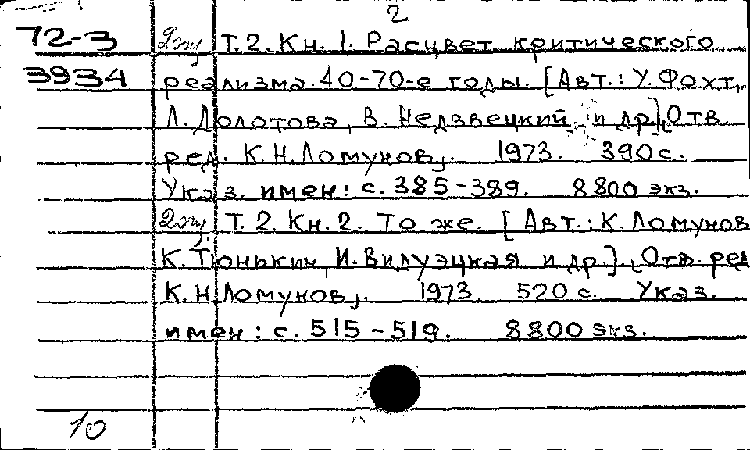 2
72-3 2эку Т.2. Кн. 1. Расцвет критического
3934 реализма. 40-70-е годы. [Авт.: У. Фохт,
Л. Долотова, В. Недзвецкий и др.] [Отв.
ред. К.Н. Ломунов]. 1973. 390 с.
Указ. имен: с. 385-389. 8800 экз.
Т. 2. Кн. 2. То же. [Авт.: К. Ломунов
К. Тюнькин, И. Видуэцкая и др.]. [Отв. ред
К. Н. Ломунов]. 1973. 520 с. Указ.
имен: с. 515-519. 8800 экз.
10